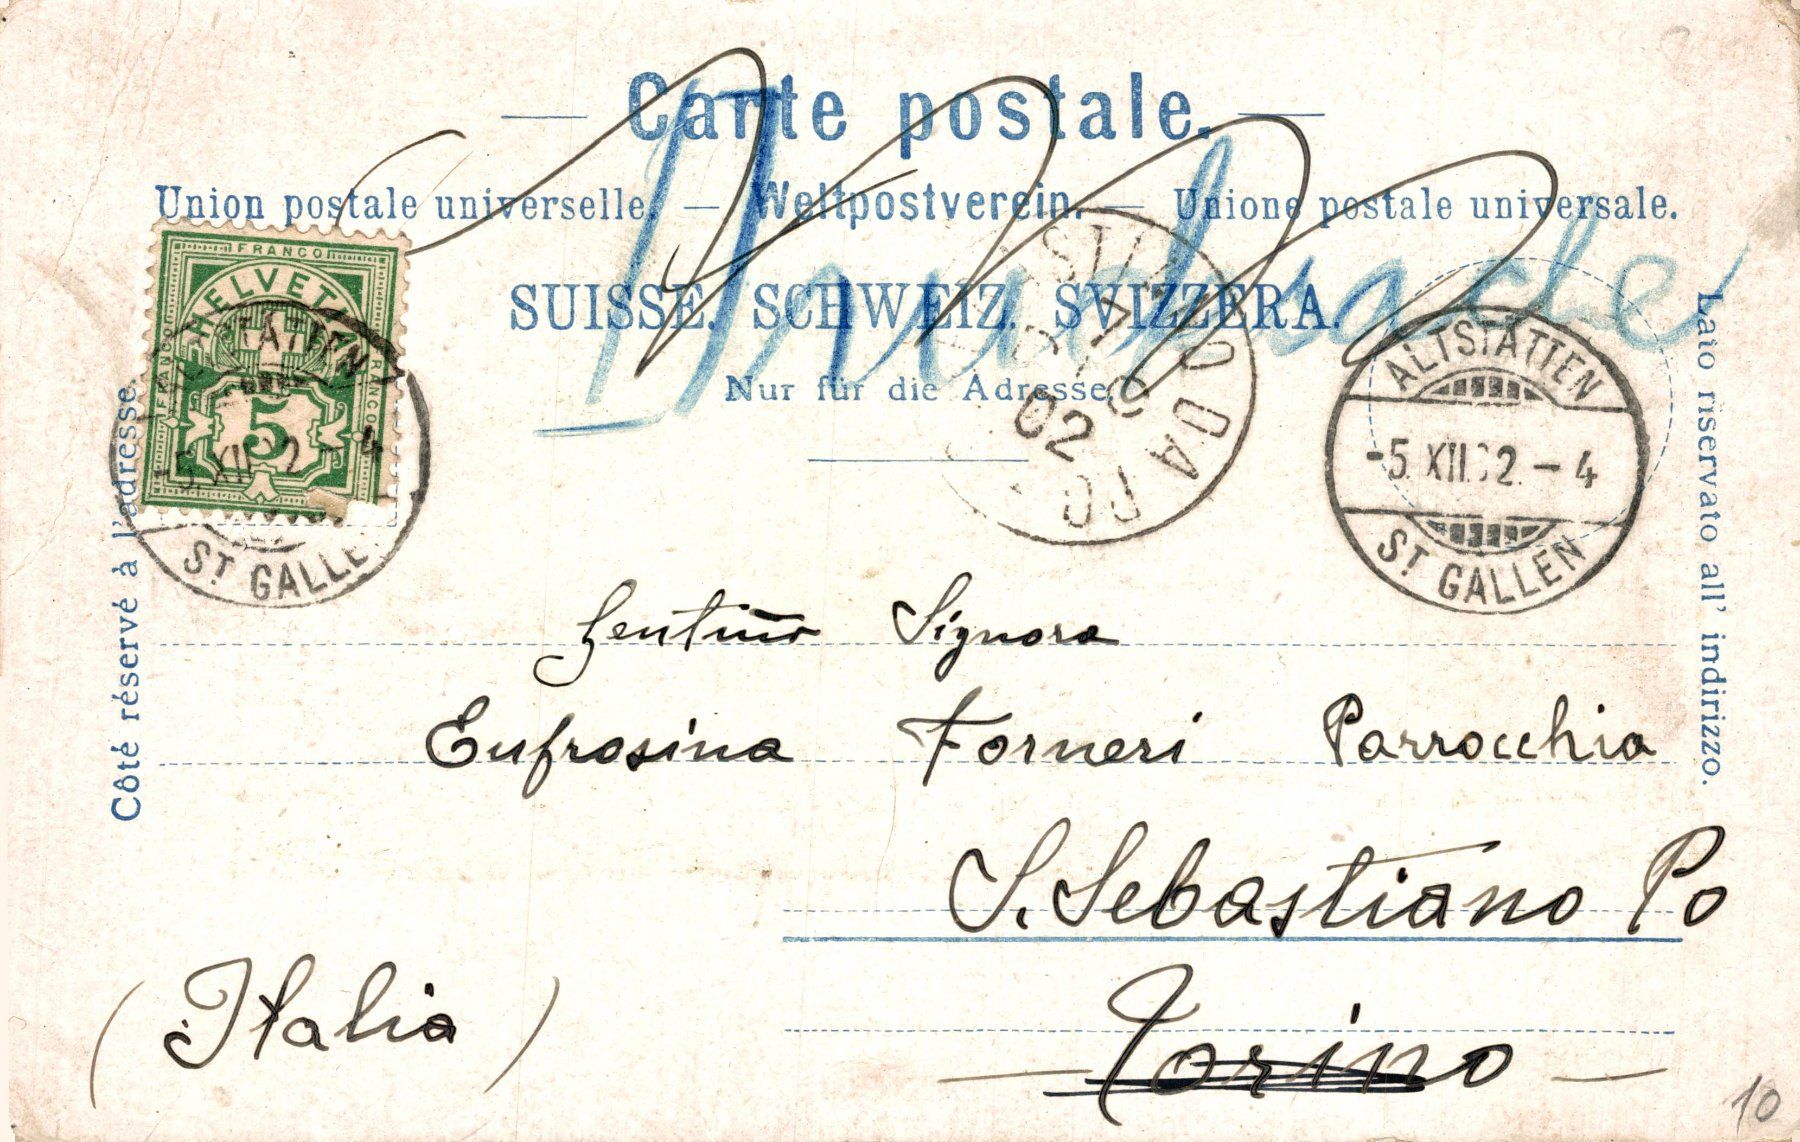 Carte postale.
Union postale universelle. — Weltpostverein. — Unione postale universale.
SUISSE. SCHWEIZ. SVIZZERA.
Nur für die Adresse.
Drucksache
Côté réservé à l'adresse.
Lato riservato all' indirizzo.
FRANCO
HELVETIA
FRANCO
FRANCO
5
ST. GALLEN
-5.XII.02.-4
7
02
ALTSTÄTTEN
-5.XII.02.-4
ST. GALLEN
Signora
Eufrosina Forneri Parrocchia
S. Sebastiano Po
Torino
(Italia)
10